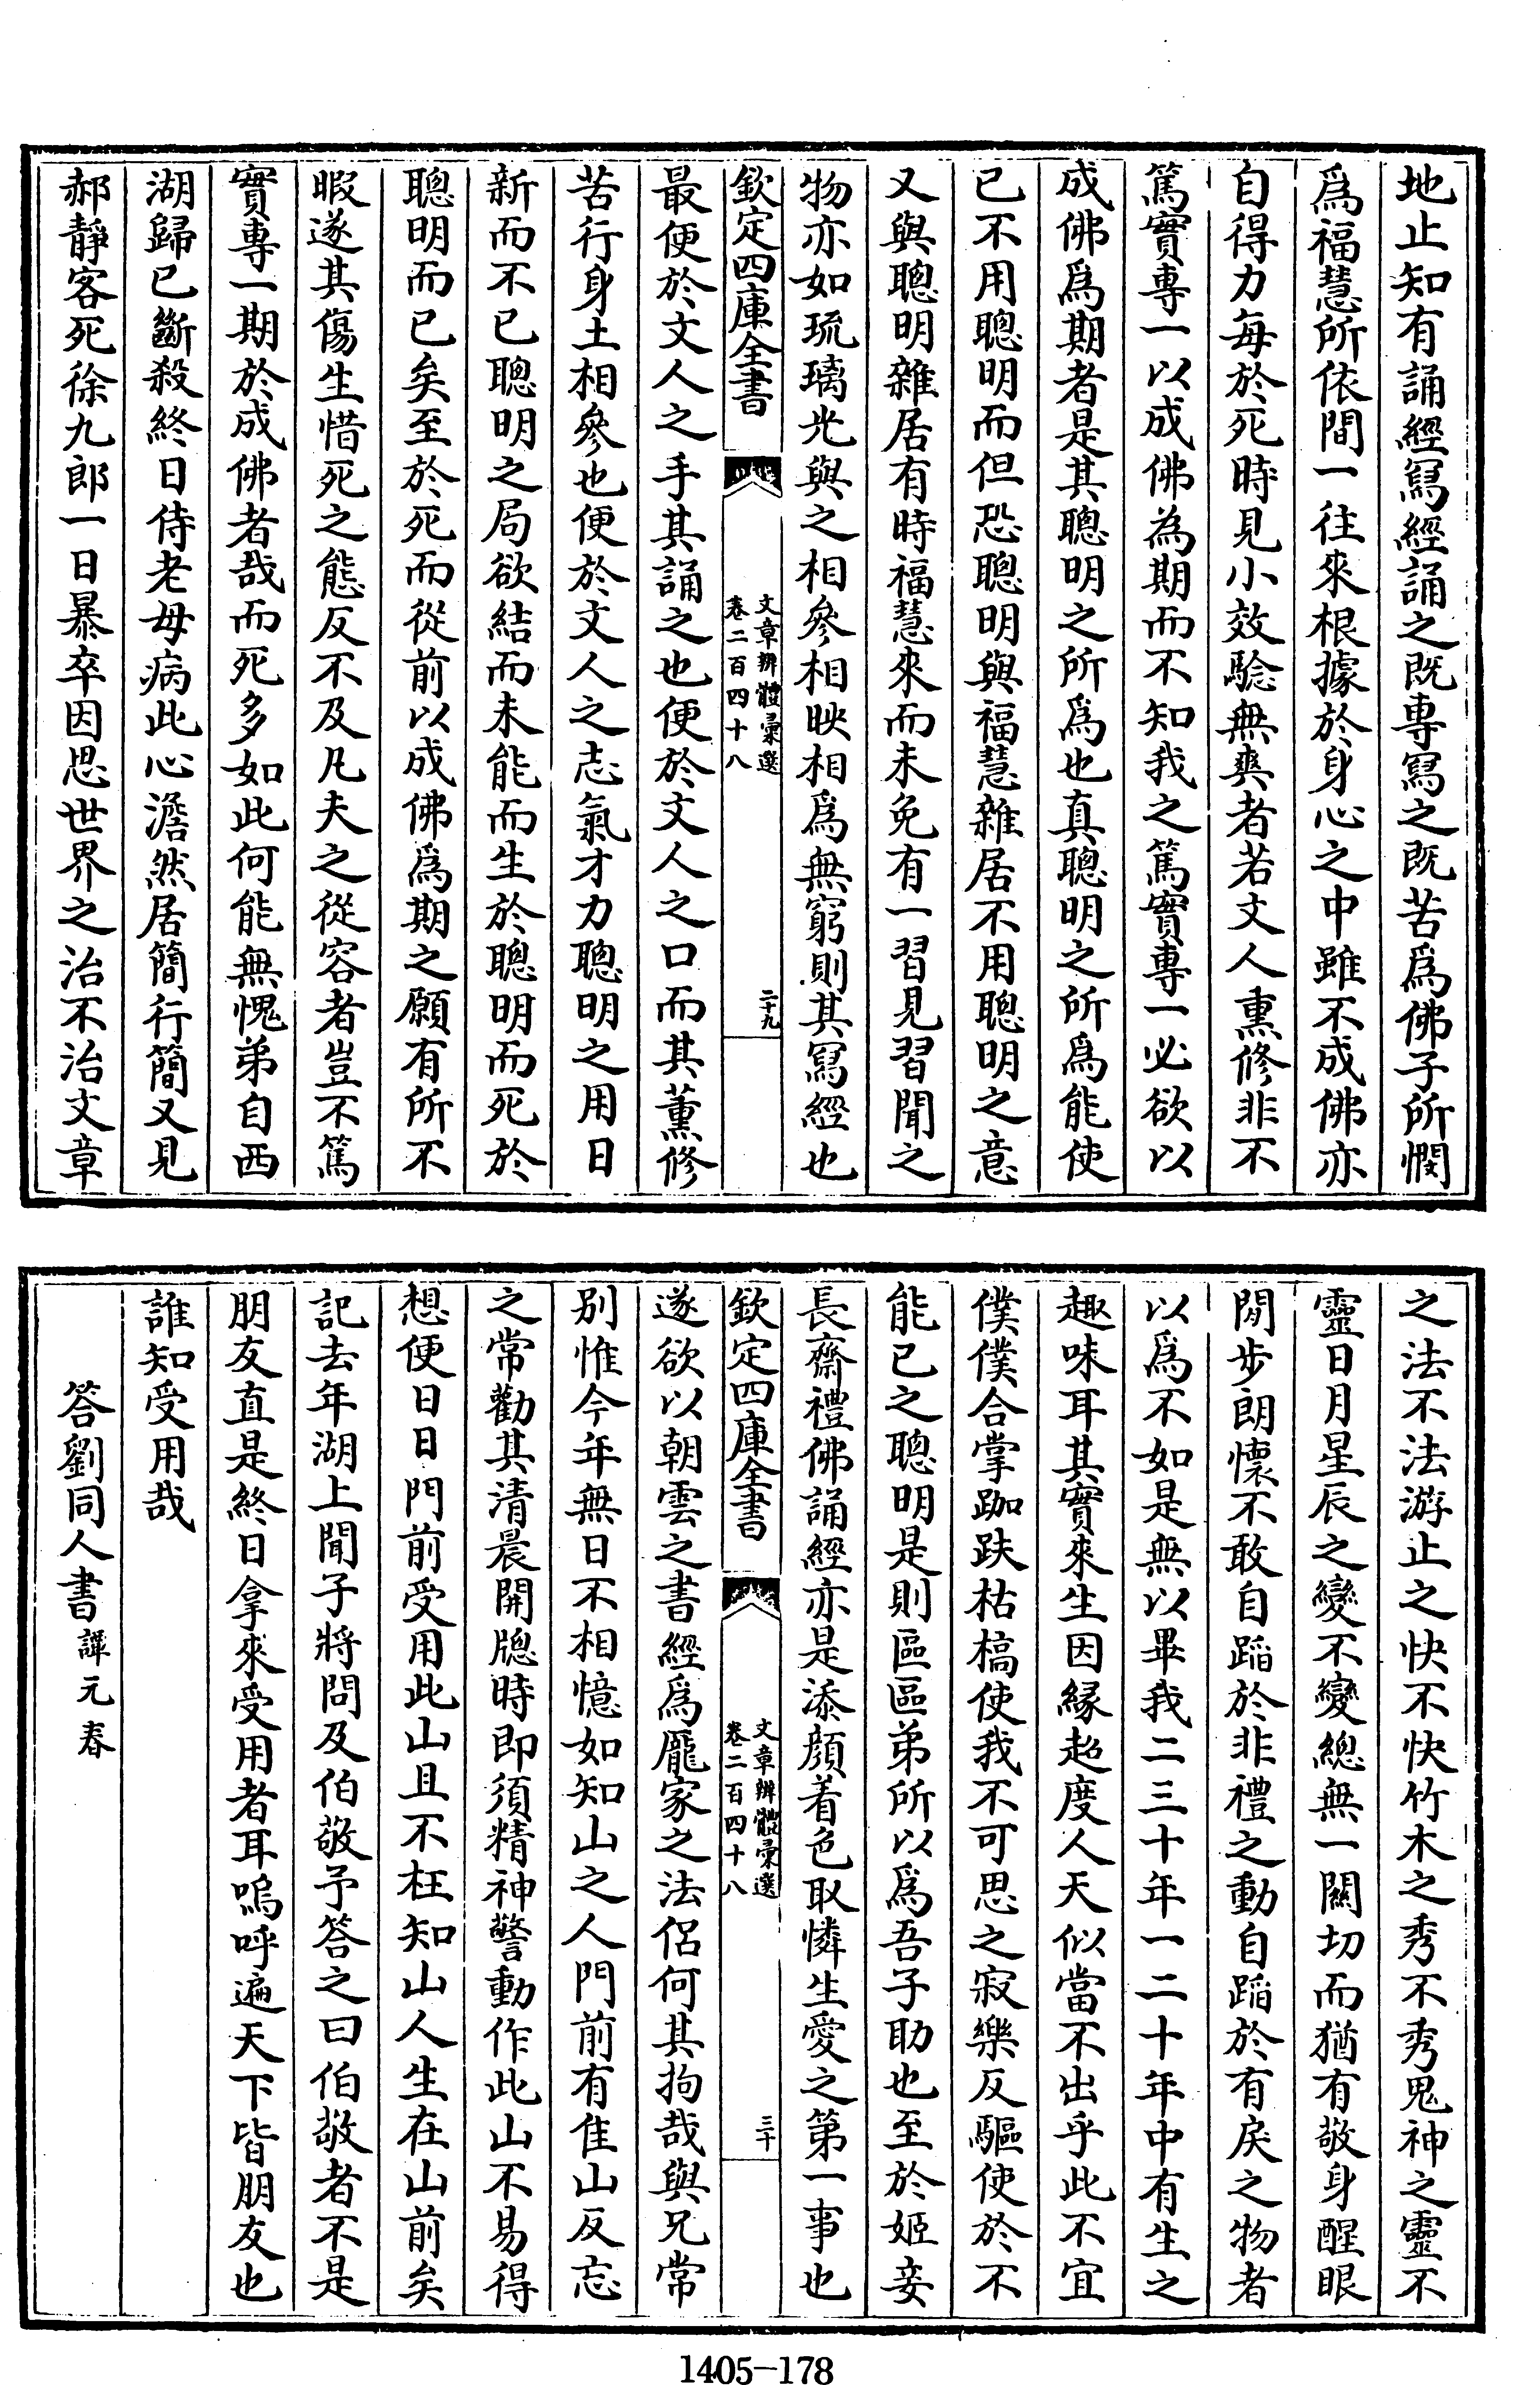 地止知有誦經寫經誦之既專寫之既苦爲佛子所憫
爲福慧所依間一往來根據於身心之中雖不成佛亦
自得力每於死時見小效驗無爽者若文人熏修非不
篤實專一以成佛為期而不知我之篤實專一必欲以
成佛爲期者是其聰明之所爲也真聰明之所爲能使
已不用聰明而但恐聰明與福慧雜居不用聰明之意
又與聰明雜居有時福慧來而未免有一習見習聞之
物亦如琉璃光與之相參相映相爲無窮則其寫經也
欽定四庫全書
文章辨體彙選
卷二百四十八
二十九
最便於文人之手其誦之也便於文人之口而其薰修
苦行身土相參也便於文人之志氣才力聰明之用日
新而不已聰明之局欲結而未能而生於聰明而死於
聰明而已矣至於死而從前以成佛爲期之願有所不
暇遂其傷生惜死之態反不及凡夫之從容者豈不篤
實專一期於成佛者哉而死多如此何能無愧弟自西
湖歸已斷殺終日侍老母病此心澹然居簡行簡又見
郝靜客死徐九郎一日暴卒因思世界之治不治文章
之法不法游止之快不快竹木之秀不秀鬼神之靈不
靈日月星辰之變不變總無一關切而猶有敬身醒眼
閒步朗懷不敢自蹈於非禮之動自蹈於有戾之物者
以爲不如是無以畢我二三十年一二十年中有生之
趣味耳其實來生因緣超度人天似當不出乎此不宜
僕僕合掌跏趺枯槁使我不可思之寂樂反驅使於不
能已之聰明是則區區弟所以爲吾子助也至於姬妾
長齋禮佛誦經亦是添顏着色取憐生愛之第一事也
欽定四庫全書
文章辨體彙選
卷二百四十八
三十
遂欲以朝雲之書經爲龐家之法侶何其拘哉與兄常
别惟今年無日不相憶如知山之人門前有佳山反忘
之常勸其清晨開牕時即須精神警動作此山不易得
想便日日門前受用此山且不枉知山人生在山前矣
記去年湖上聞子將問及伯敬予答之曰伯敬者不是
朋友直是終日拿來受用者耳嗚呼遍天下皆朋友也
誰知受用哉
答劉同人書譚元春
1405—178